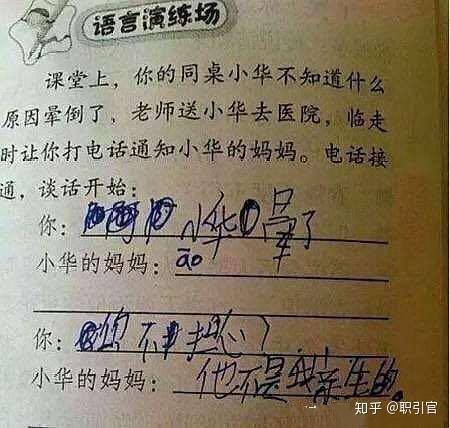 语言演练场
课堂上，你的同桌小华不知道什么
原因晕倒了，老师送小华去医院，临走
时让你打电话通知小华的妈妈。电话接
通，谈话开始：
你：小华晕了
小华的妈妈：āo
你：你不担心？
小华的妈妈：他不是我亲生的。
知乎 @职引官